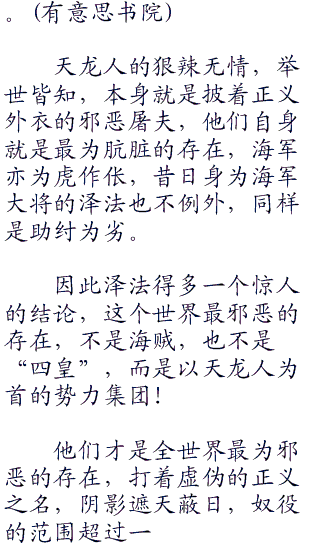 。(有意思书院)
天龙人的狠辣无情，举
世皆知，本身就是披着正义
外衣的邪恶屠夫，他们自身
就是最为肮脏的存在，海军
亦为虎作伥，昔日身为海军
大将的泽法也不例外，同样
是助纣为劣。
因此泽法得多一个惊人
的结论，这个世界最邪恶的
存在，不是海贼，也不是
“四皇”，而是以天龙人为
首的势力集团！
他们才是全世界最为邪
恶的存在，打着虚伪的正义
之名，阴影遮天蔽日，奴役
的范围超过一